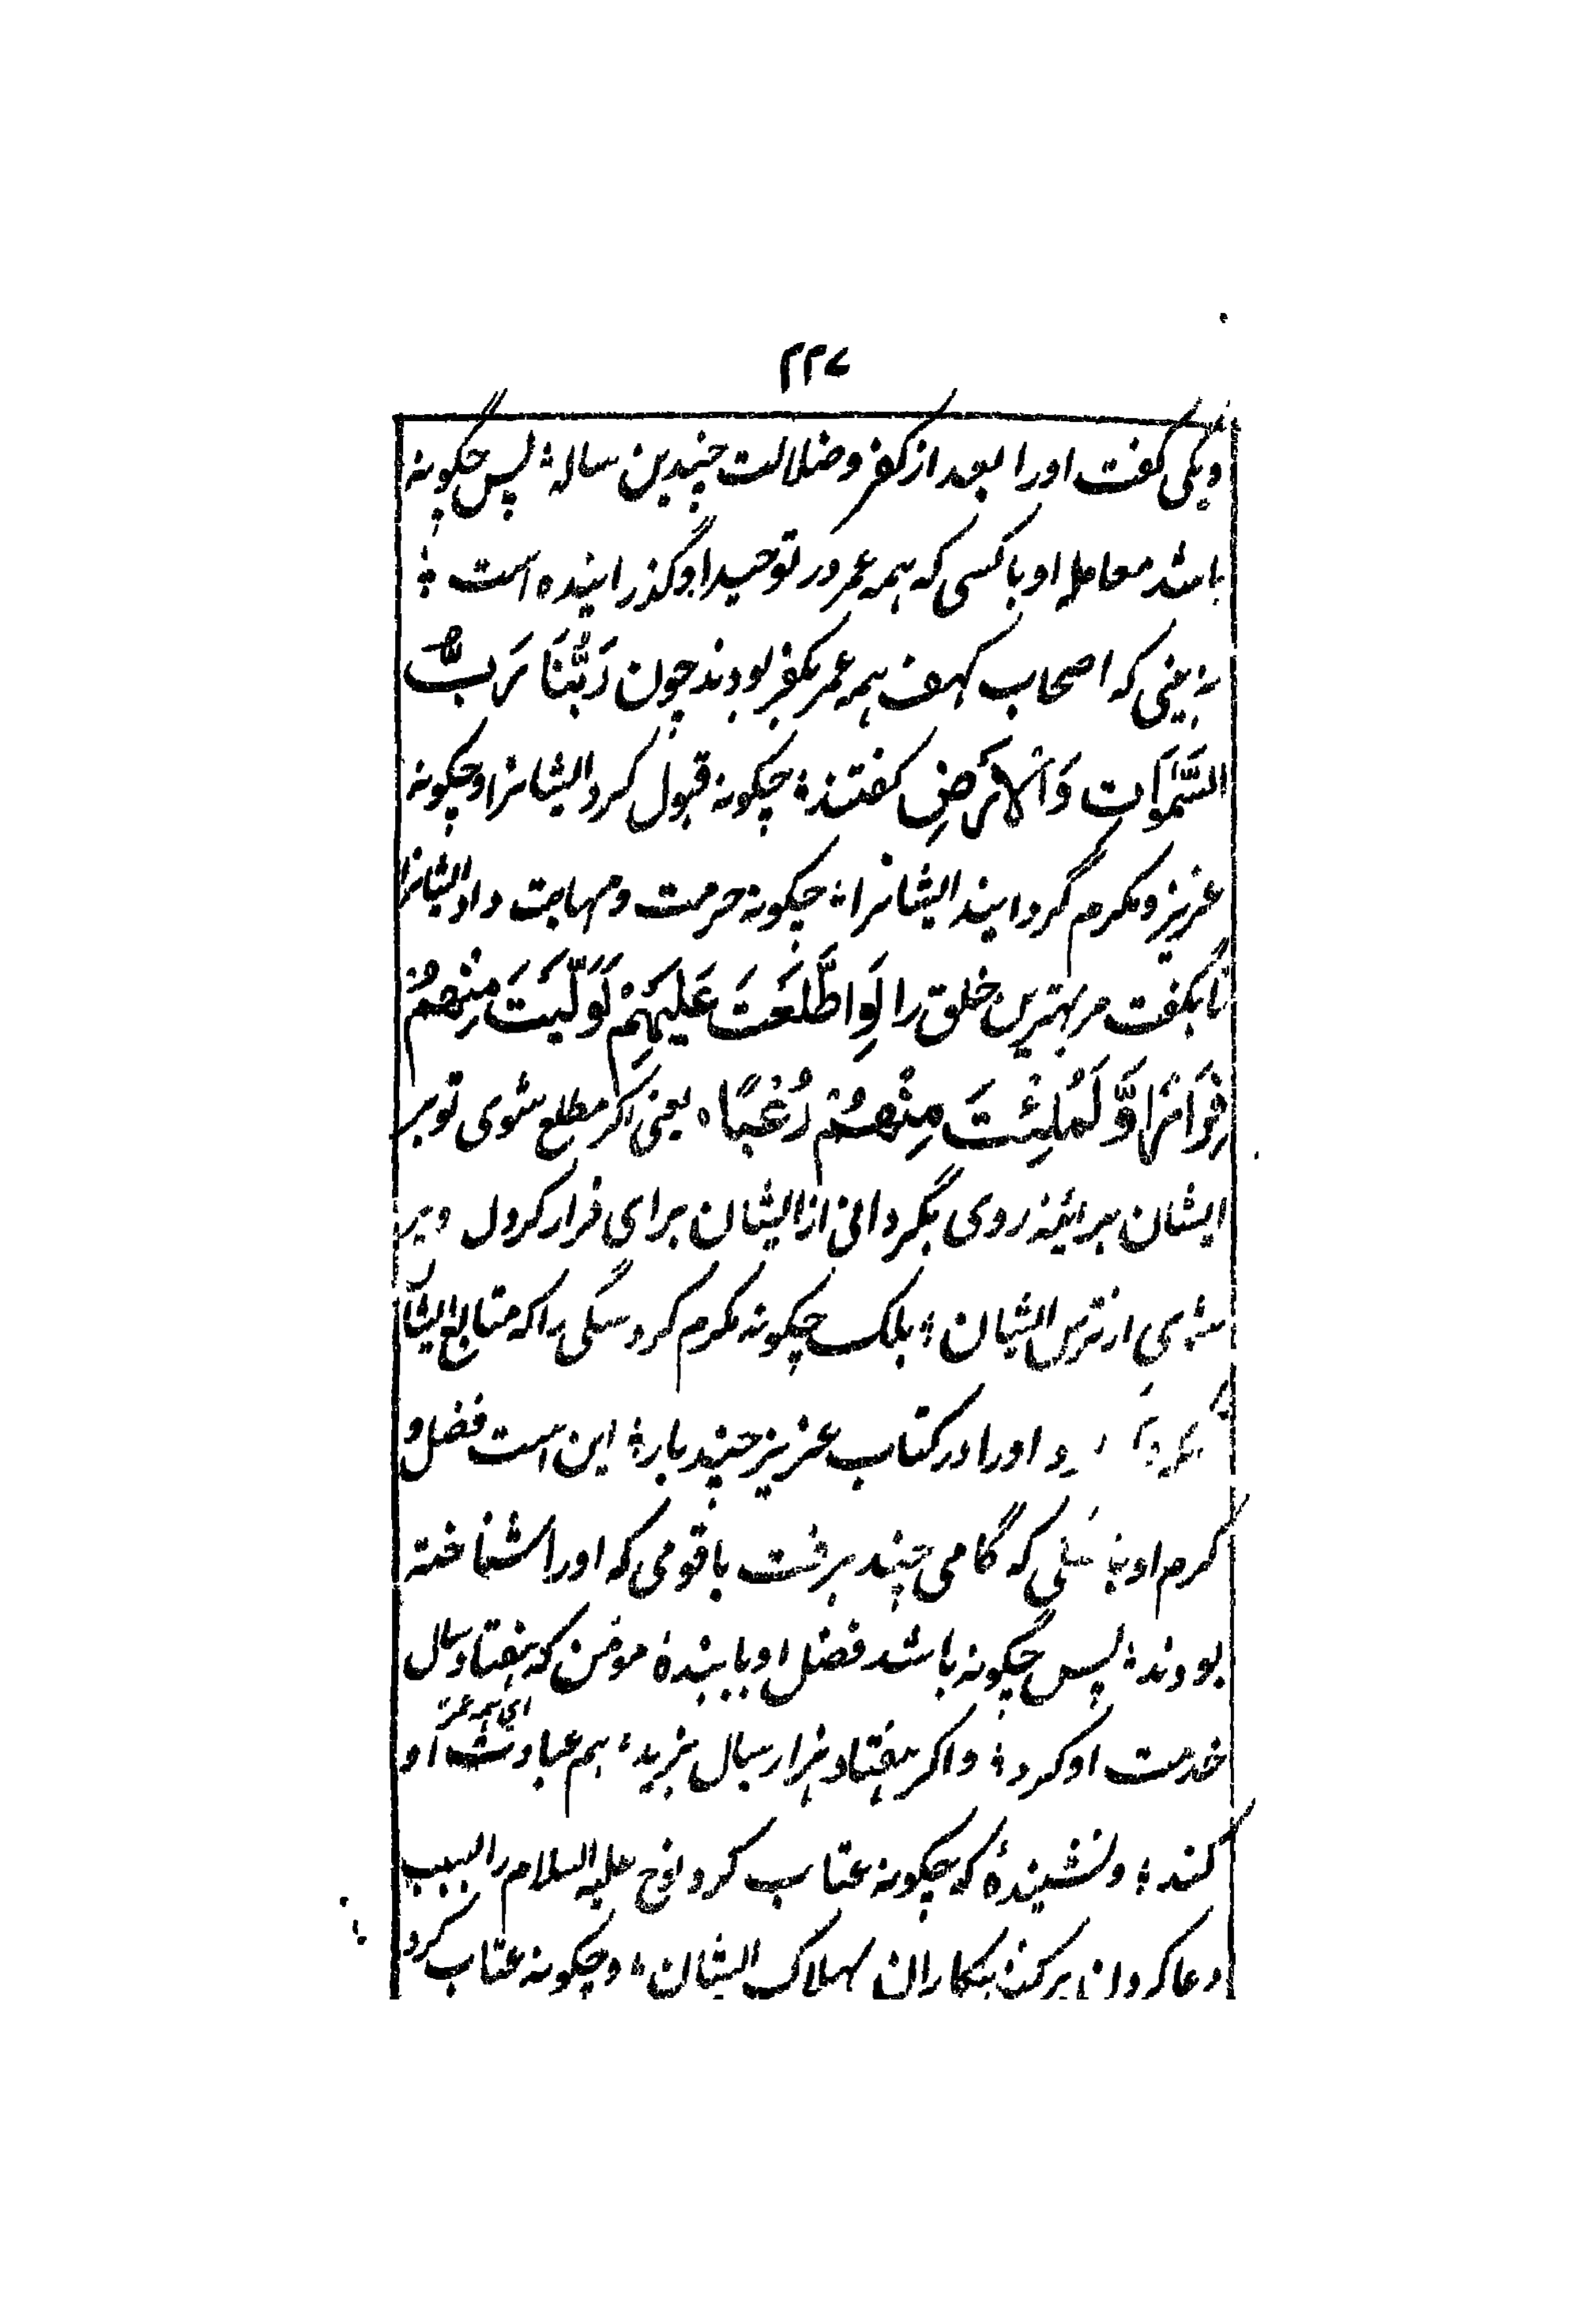 ۲۲۷
ویکی گفت اورا بعد از کفر وضلالت چندین ساله؛ پس چگونه
باشد معامله او با کسی که همه عمر در توحید او گذرانیده است؛
نه بینی که اصحاب کهف همه عمر بکفر بودند چون رَبُّنَا رَبُّ
السَّمٰوَاتِ وَالْاَرْضِ گفتند؛ چگونه قبول کرد ایشانرا وچگونه
عزیز ومکرم گردانید ایشانرا؛ چگونه حرمت ومهابت داد ایشانرا
تا بگفت مر بهترین خلق را لَوِ اطَّلَعْتَ عَلَیْهِمْ لَوَلَّیْتَ مِنْهُمْ
فِرَارًا وَّلَمُلِئْتَ مِنْهُمْ رُعْبًا؛ یعنی اگر مطلع شوی تو بر
ایشان هرآئینه روی بگردانی از ایشان برای فرار کردن وپر
شوی از ترس ایشان؛ بلک چگونه مکرم کرد سگی را که متابع ایشان
اورا در کتاب عزیز چند بار؛ این است فضل و
کرم او با سگی که گامی چند برفت با قومی که اورا شناخته
بودند؛ پس چگونه باشد فضل او با بندهٔ مؤمن که هفتاد سال
خدمت او کرد؛ واگر هفتاد هزار سال بزید؛ هم عبادت او
ای همه عمر
کند؛ ونشنیدهٔ که چگونه عتاب کرد نوح علیه السلام را بسبب
دعا کردن بر گناهکاران بهلاک ایشان؛ وچگونه عتاب کرد